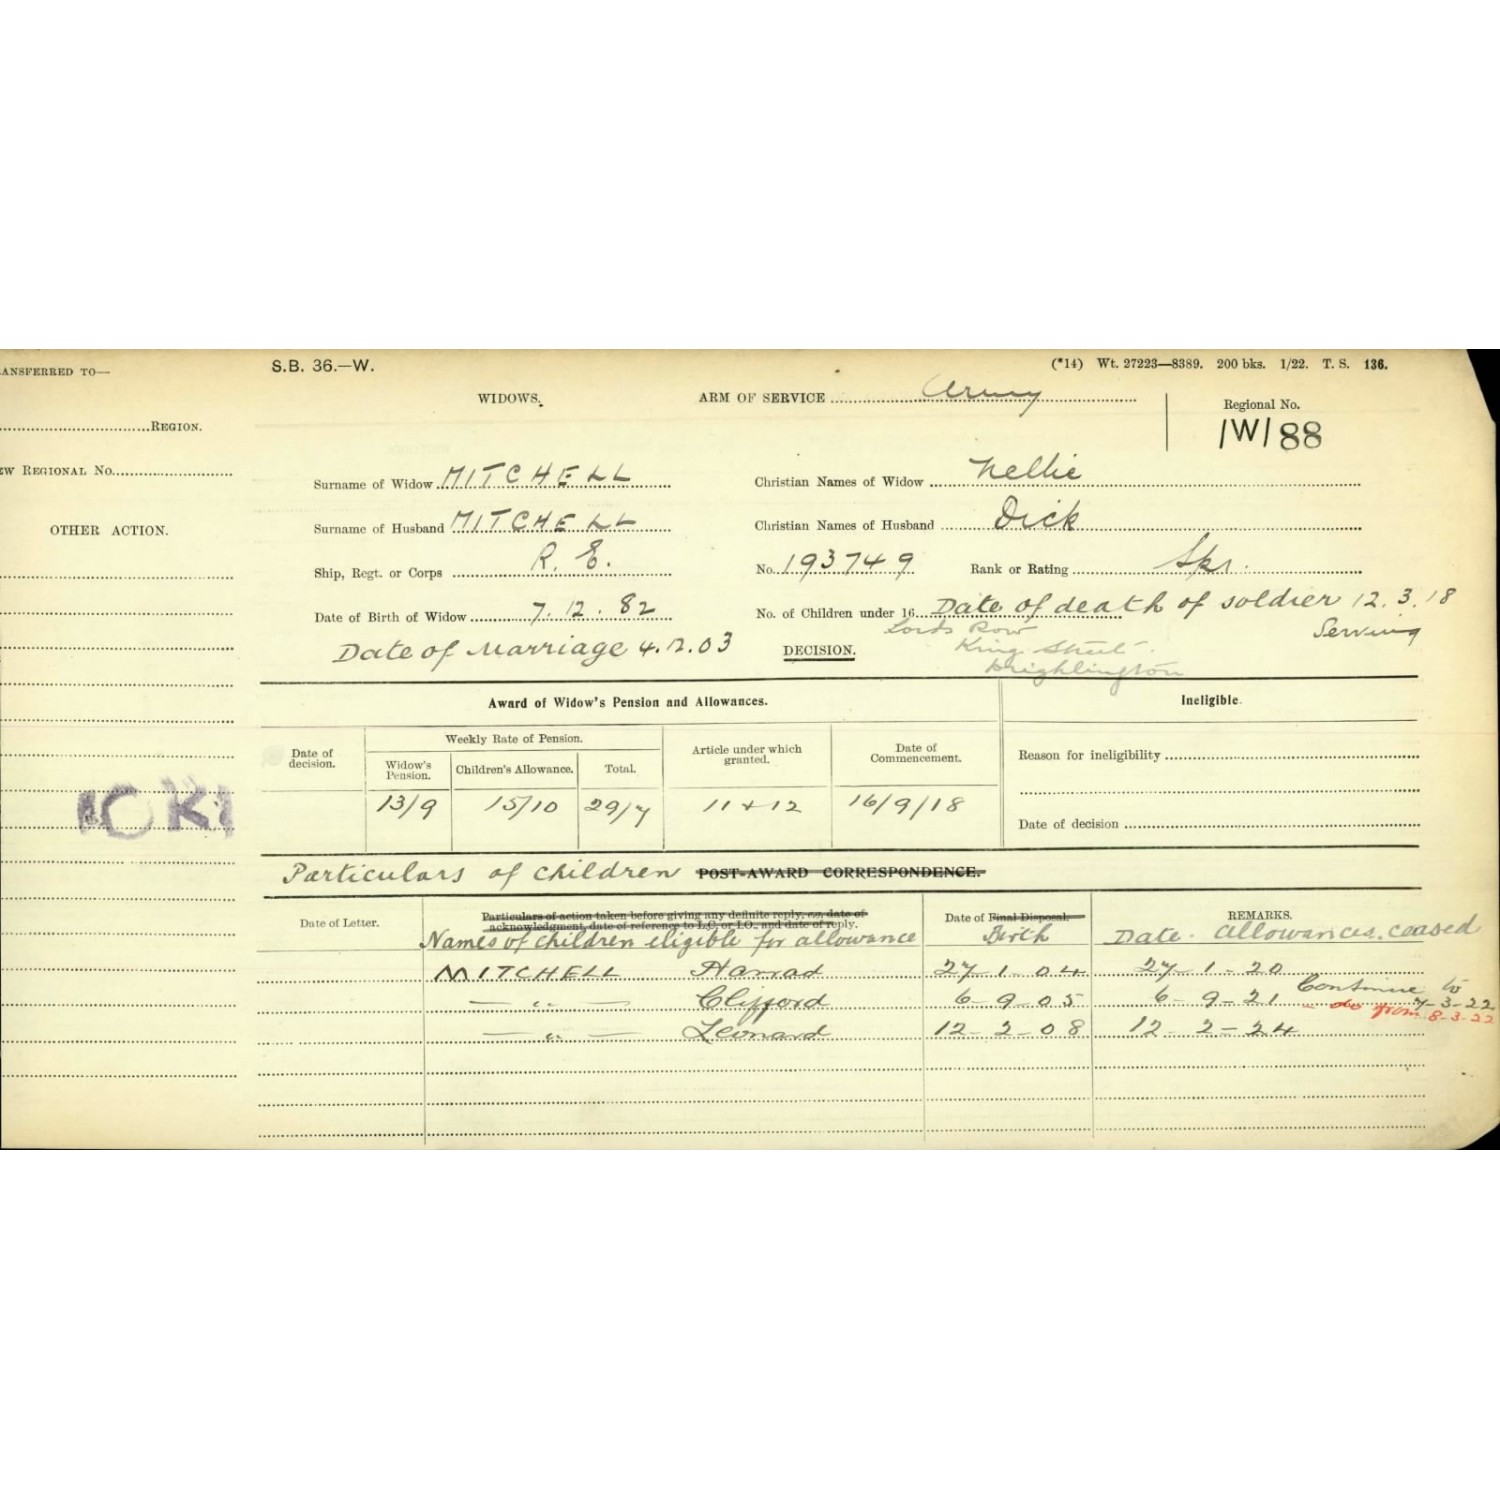 ANSFERRED TO—
S.B. 36.—W.
(*14) Wt. 27223—8389. 200 bks. 1/22. T. S. 136.
WIDOWS.
ARM OF SERVICE Army
Regional No.
1W188
REGION.
EW REGIONAL No.
OTHER ACTION.
Surname of Widow MITCHELL
Christian Names of Widow Nellie
Surname of Husband MITCHELL
Christian Names of Husband Dick
Ship, Regt. or Corps R. E.
No. 193749
Rank or Rating Spr.
Date of Birth of Widow 7.12.82
No. of Children under 16 Date of death of soldier 12.3.18
Serving
Date of Marriage 4.12.03
DECISION.
Lords Row
King Street
Drighlington
Award of Widow's Pension and Allowances.
Ineligible.
Date of decision.
Weekly Rate of Pension.
Widow's Pension.
Children's Allowance.
Total.
Article under which granted.
Date of Commencement.
Reason for ineligibility
13/9 15/10 29/7 11 + 12 16/9/18
Date of decision
Particulars of children POST-AWARD CORRESPONDENCE.
Date of Letter.
Particulars of action taken before giving any definite reply, e.g. date of
acknowledgment, date of reference to L.C. or I.O., and date of reply.
Names of children eligible for allowance
Date of Final Disposal.
Birth
REMARKS.
Date allowances ceased
MITCHELL Harrad 27-1-04 27-1-20
— " — Clifford 6-9-05 6-9-21 Continue to 7-3-22
— do from 8-3-22
— " — Leonard 12-2-08 12-2-24